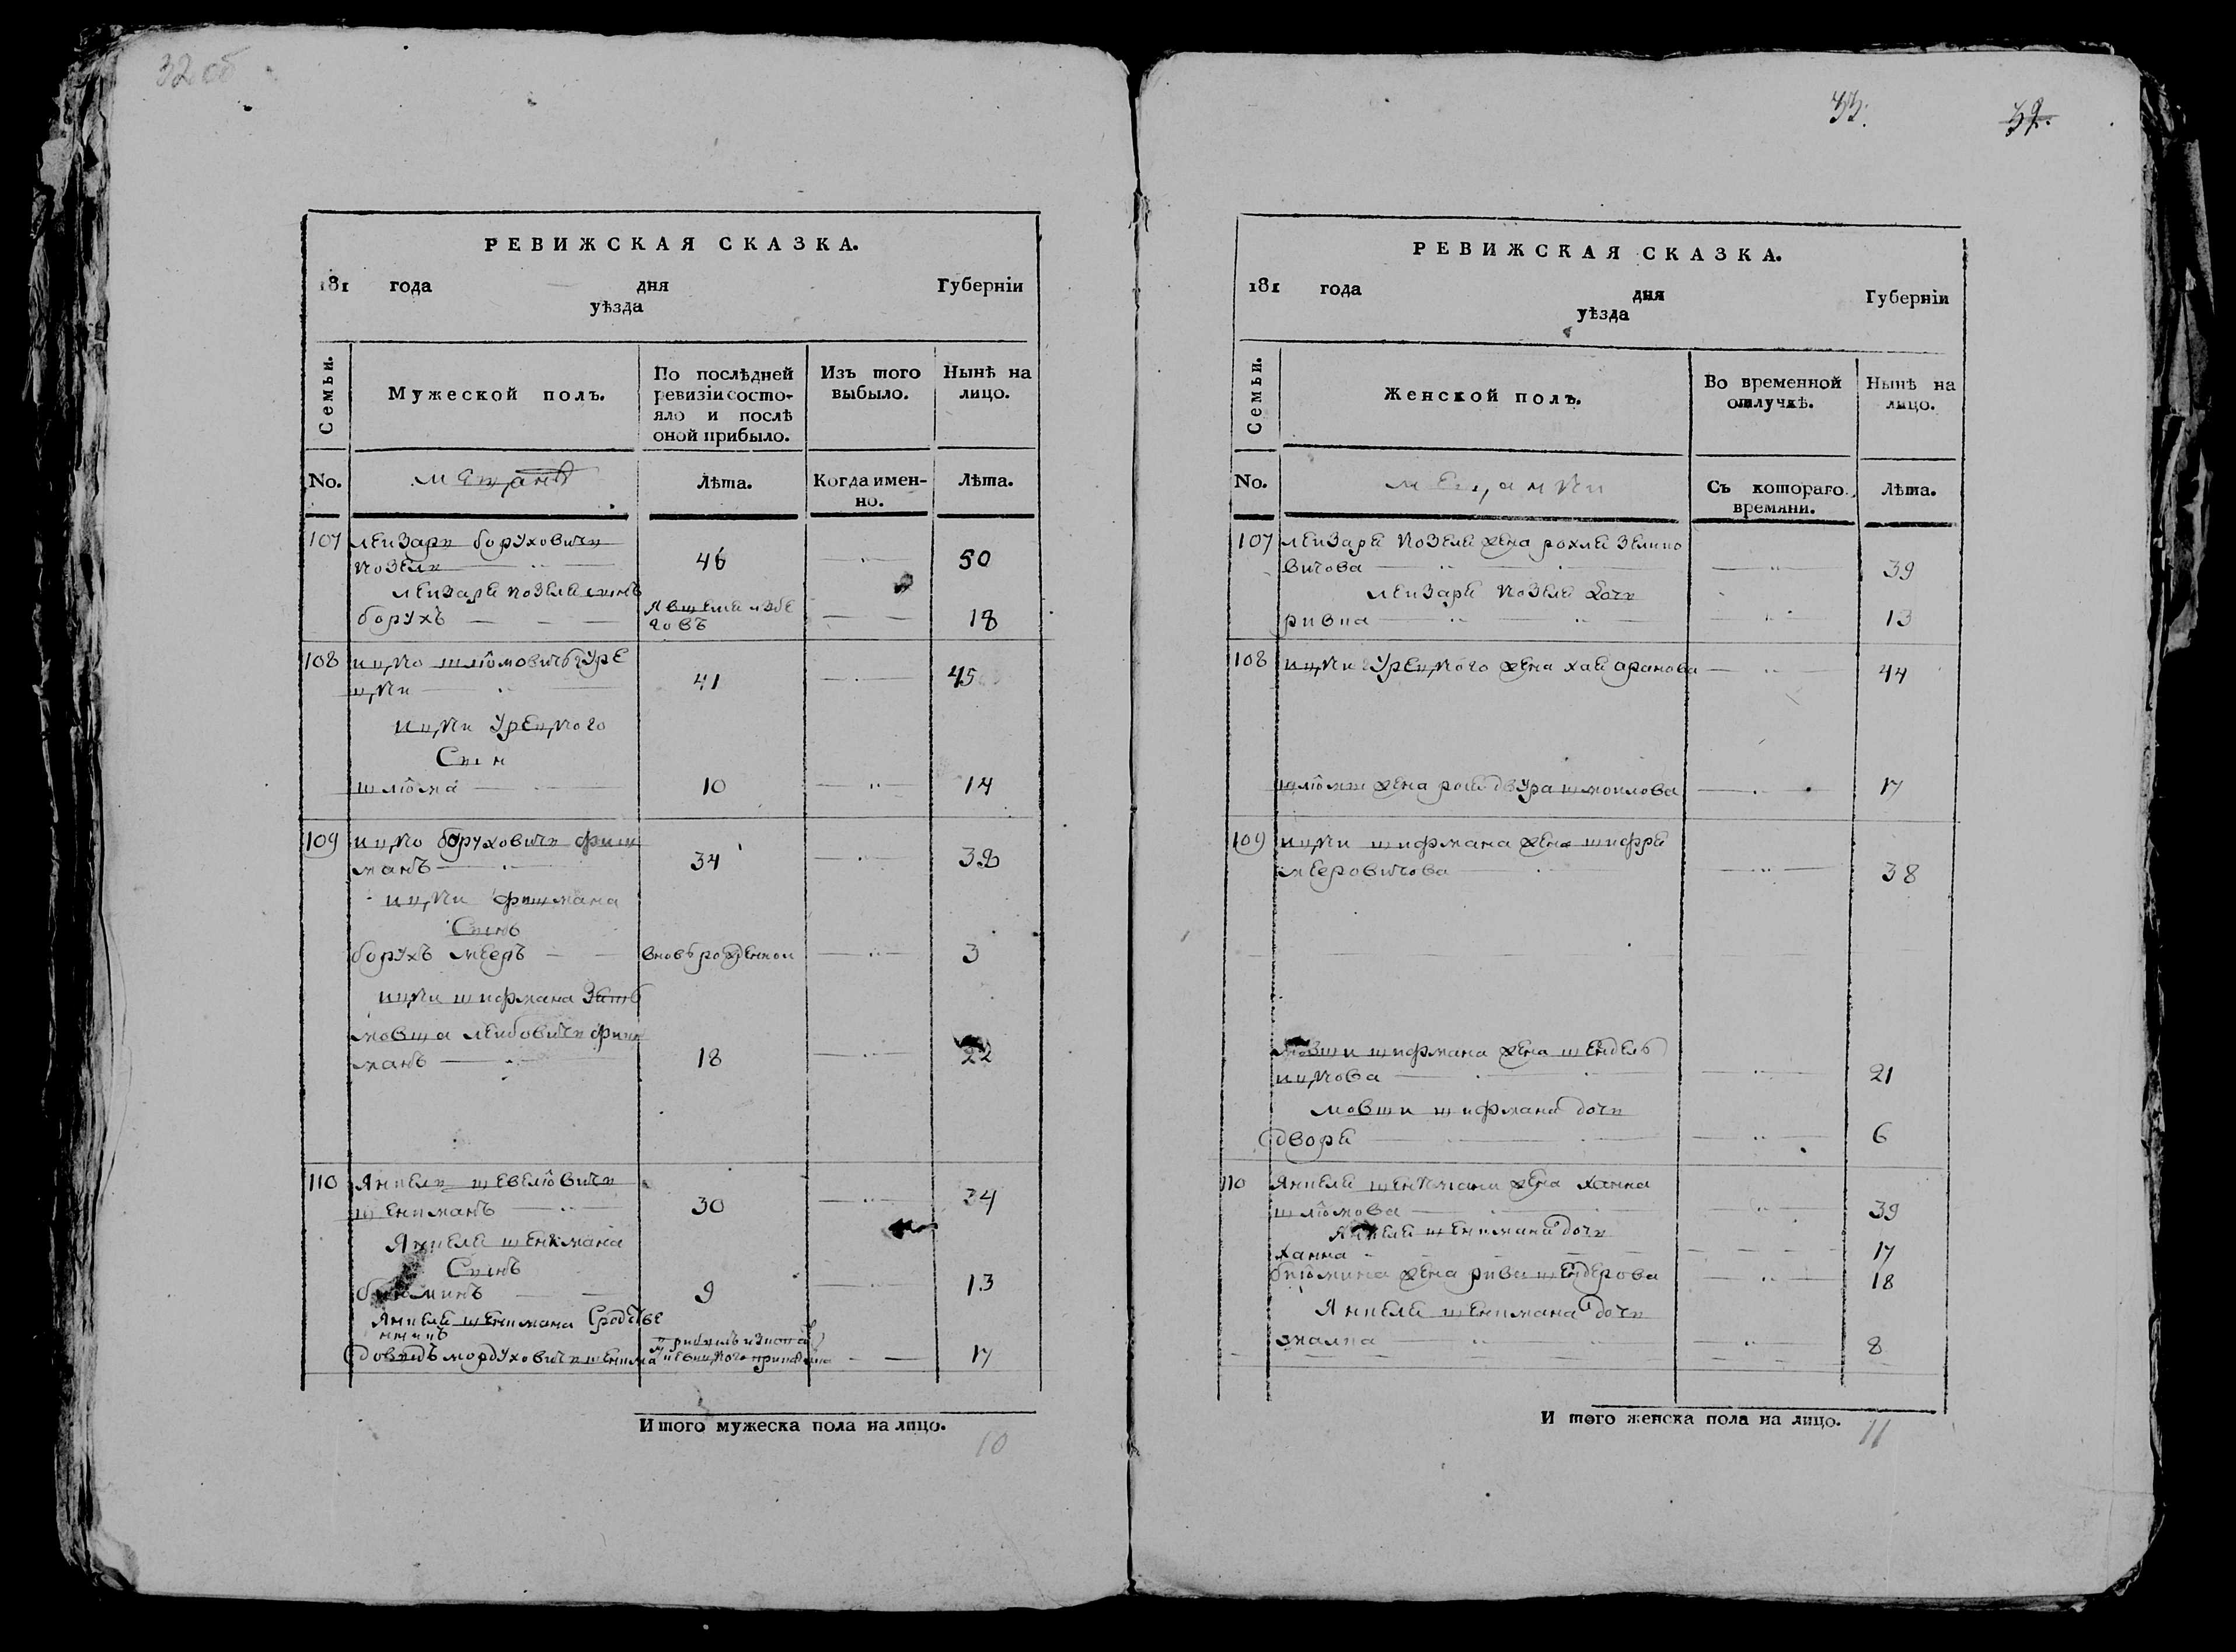 32 об
РЕВИЖСКАЯ СКАЗКА.
181 года дня Губерніи
уѣзда
Семьи.
Мужеской полъ.
По послѣдней ревизіи состо-
яло и послѣ
оной прибыло.
Изъ того выбыло.
Нынѣ на лицо.
No.
мещанъ
Лѣта.
Когда имен-
но.
Лѣта.
107 лейзаръ боруховичъ
46 50
лейзара сынъ
борухъ 18
108 ицко шлюмовичъ гуре
цки 41 45
ицки урецкого
Сын
шлюма 10 14
109 ицко боруховичъ фиш
манъ 34 38
ицки фишмана
Сынъ
борухъ мееръ вновь рожденной 3
ицки шифмана Зять
мовша лейбовичъ фиш
манъ 18 22
110 Янкель шевелювичъ
шенкманъ 30 34
Янкеля шенкмана
Сынъ
9 13
Янкеля шенкмана Сродстве
нникъ
довидъ мордуховичъ шенкма 17
Итого мужеска пола на лицо. 10
33.
32.
РЕВИЖСКАЯ СКАЗКА.
181 года дня Губерніи
уѣзда
Семьи.
Женской полъ.
Во временной отлучкѣ.
Нынѣ на лицо.
No.
мещанки
Съ котораго
времяни.
Лѣта.
107 лейзара жена рохля зелико
вичова 39
лейзара дочь
ривка 13
108 ицки урецкого жена хая аранова 44
шлюмы жена двура шмоилова 17
109 ицки шифмана жена шифра
мееровичова 38
мовши шифмана жена шендель
ицкова 21
мовши шифмана дочь
двора 6
110 Янкеля шенкмана жена ханна
шлюмова 39
Янкеля шенкмана дочь
ханна 17
бнюмина жена рива шендерова 18
Янкеля шенкмана дочь
8
И того женска пола на лицо. 11